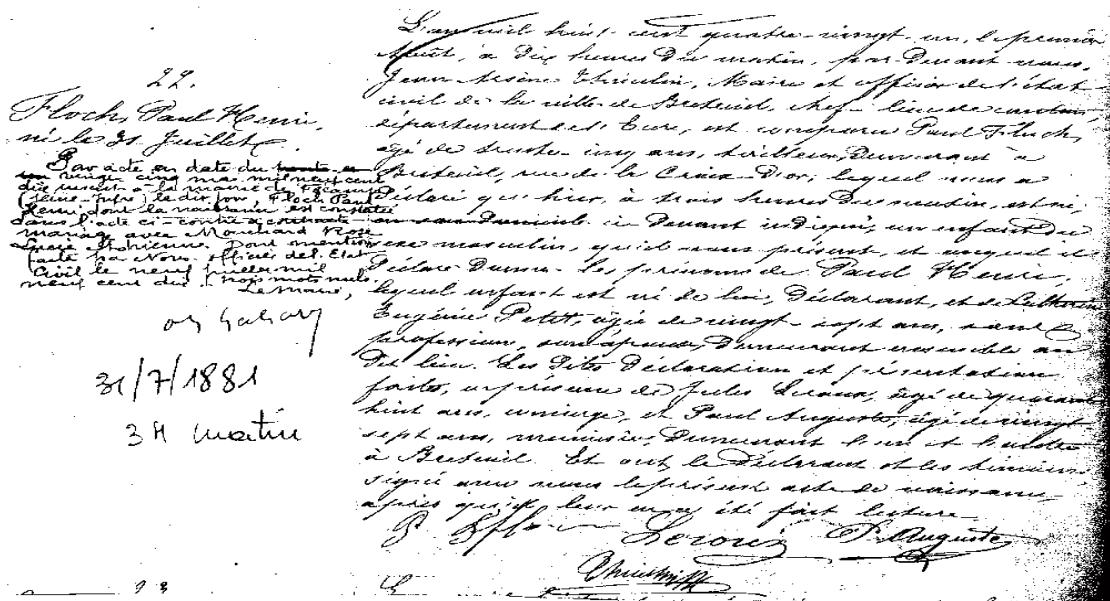 22.
Floch, Paul Henri,
né le 31 Juillet.
Par acte en date du trente et
un vingt cinq mai mil neuf cent
dix inscrit à la mairie de Fécamp
(Seine-Infre) le dix juin, Floch Paul
Henri dont la naissance est constatée
dans l'acte ci-contre a contracté
mariage avec Mouchard Rose
Lucie Adrienne. Dont mention
faite par Nous officier de l'Etat
Civil le neuf juillet mil
neuf cent dix. Trois mots nuls.
Le Maire,
31/7/1881
3 H matin
L'an mil huit cent quatre-vingt-un, le premier
Août, à dix heures du matin, par-devant nous,
Jean Arsène, Maire et officier de l'état
civil de la ville de Breteuil, chef-lieu de canton
département de l'Eure, est comparu Paul Floch,
âgé de trente-cinq ans, demeurant à
Breteuil, rue de la Croix-d'or, lequel nous a
déclaré qu'hier, à trois heures du matin, est né,
en son domicile ci-devant indiqué, un enfant du
sexe masculin, qu'il nous présente, et auquel il
déclare donner les prénoms de Paul Henri,
lequel enfant est né de lui, déclarant, et de Catherine
Eugénie Petit, âgée de vingt-sept ans, sans
profession, son épouse, demeurant ensemble au
dit lieu. Les dites déclaration et présentation
faites, en présence de Jules Leroux, âgé de quarante
huit ans, concierge, et Paul Auguste, âgé de vingt
sept ans, menuisier, demeurant l'un et l'autre
à Breteuil. Et ont, le déclarant et les témoins
signé avec nous le présent acte de naissance,
après qu'il leur en a été fait lecture.
P. Auguste
23